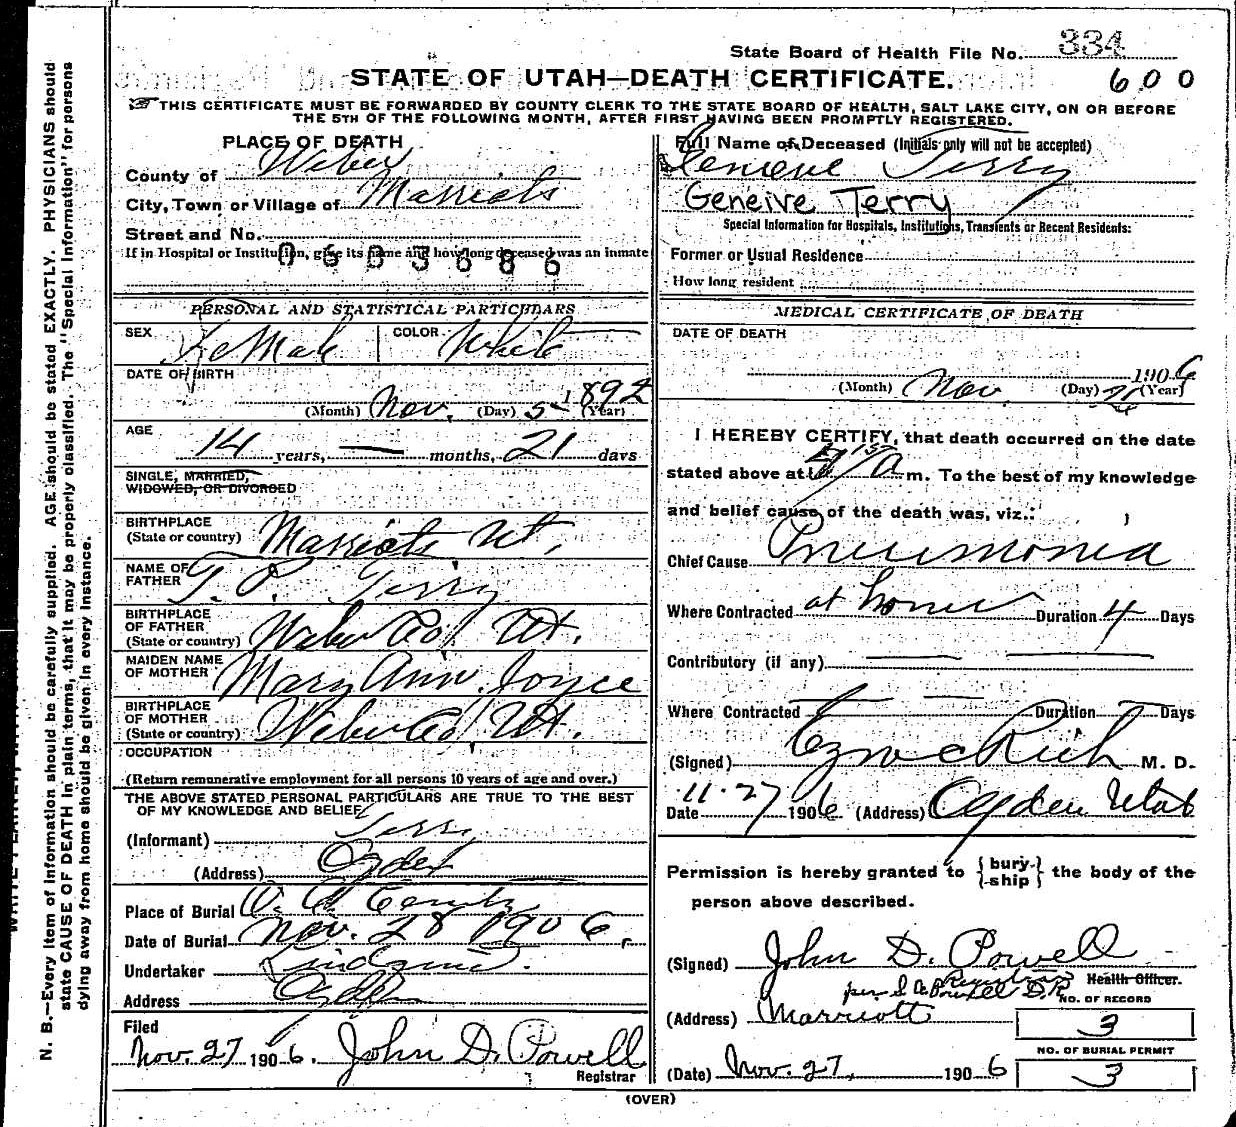 State Board of Health File No. 334
STATE OF UTAH—DEATH CERTIFICATE.
600
THIS CERTIFICATE MUST BE FORWARDED BY COUNTY CLERK TO THE STATE BOARD OF HEALTH, SALT LAKE CITY, ON OR BEFORE
THE 5TH OF THE FOLLOWING MONTH, AFTER FIRST HAVING BEEN PROMPTLY REGISTERED.
PLACE OF DEATH
County of Weber
City, Town or Village of Marriots
Street and No.
If in Hospital or Institution, give its name and how long deceased was an inmate
0603686
PERSONAL AND STATISTICAL PARTICULARS
SEX FeMale COLOR White
DATE OF BIRTH
(Month) Nov. (Day) 5 1892 (Year)
AGE
14 years, — months, 21 days
SINGLE, MARRIED,
WIDOWED, OR DIVORCED
BIRTHPLACE
(State or country) Marriots Ut.
NAME OF
FATHER T. P. Terry
BIRTHPLACE
OF FATHER
(State or country) Weber Co, Ut.
MAIDEN NAME
OF MOTHER Mary Ann Joyce
BIRTHPLACE
OF MOTHER
(State or country) Weber Co, Ut.
OCCUPATION
(Return remunerative employment for all persons 10 years of age and over.)
THE ABOVE STATED PERSONAL PARTICULARS ARE TRUE TO THE BEST
OF MY KNOWLEDGE AND BELIEF
(Informant) Terry
(Address) Ogden
Place of Burial
Date of Burial Nov. 28 1906.
Undertaker Lindquist.
Address Ogden
Filed
Nov. 27 1906. John D. Powell
Registrar
Full Name of Deceased (Initials only will not be accepted)
Genieve Terry
Geneive Terry
Special Information for Hospitals, Institutions, Transients or Recent Residents:
Former or Usual Residence
How long resident
MEDICAL CERTIFICATE OF DEATH
DATE OF DEATH
1906
(Month) Nov. (Day) 26 (Year)
I HEREBY CERTIFY, that death occurred on the date
stated above at a m. To the best of my knowledge
and belief cause of the death was, viz.:
Chief Cause Pneumonia
Where Contracted at home Duration 4 Days
Contributory (if any)
Where Contracted Duration Days
(Signed) Rich M. D.
Date 11-27 1906 (Address) Ogden Utah
Permission is hereby granted to {bury- -ship} the body of the
person above described.
(Signed) John D. Powell
Registrar Health Officer.
per Powell D.R.
(Address) Marriott
NO. OF RECORD
3
NO. OF BURIAL PERMIT
3
(Date) Nov. 27, 1906
(OVER)
N. B.—Every item of information should be carefully supplied. AGE should be stated EXACTLY. PHYSICIANS should
state CAUSE OF DEATH in plain terms, that it may be properly classified. The "Special Information" for persons
dying away from home should be given in every instance.